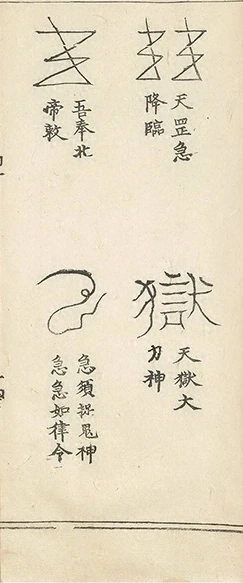 天罡急
降臨
吾奉北
帝敕
獄
天獄大
力神
急須捉鬼神
急急如律令